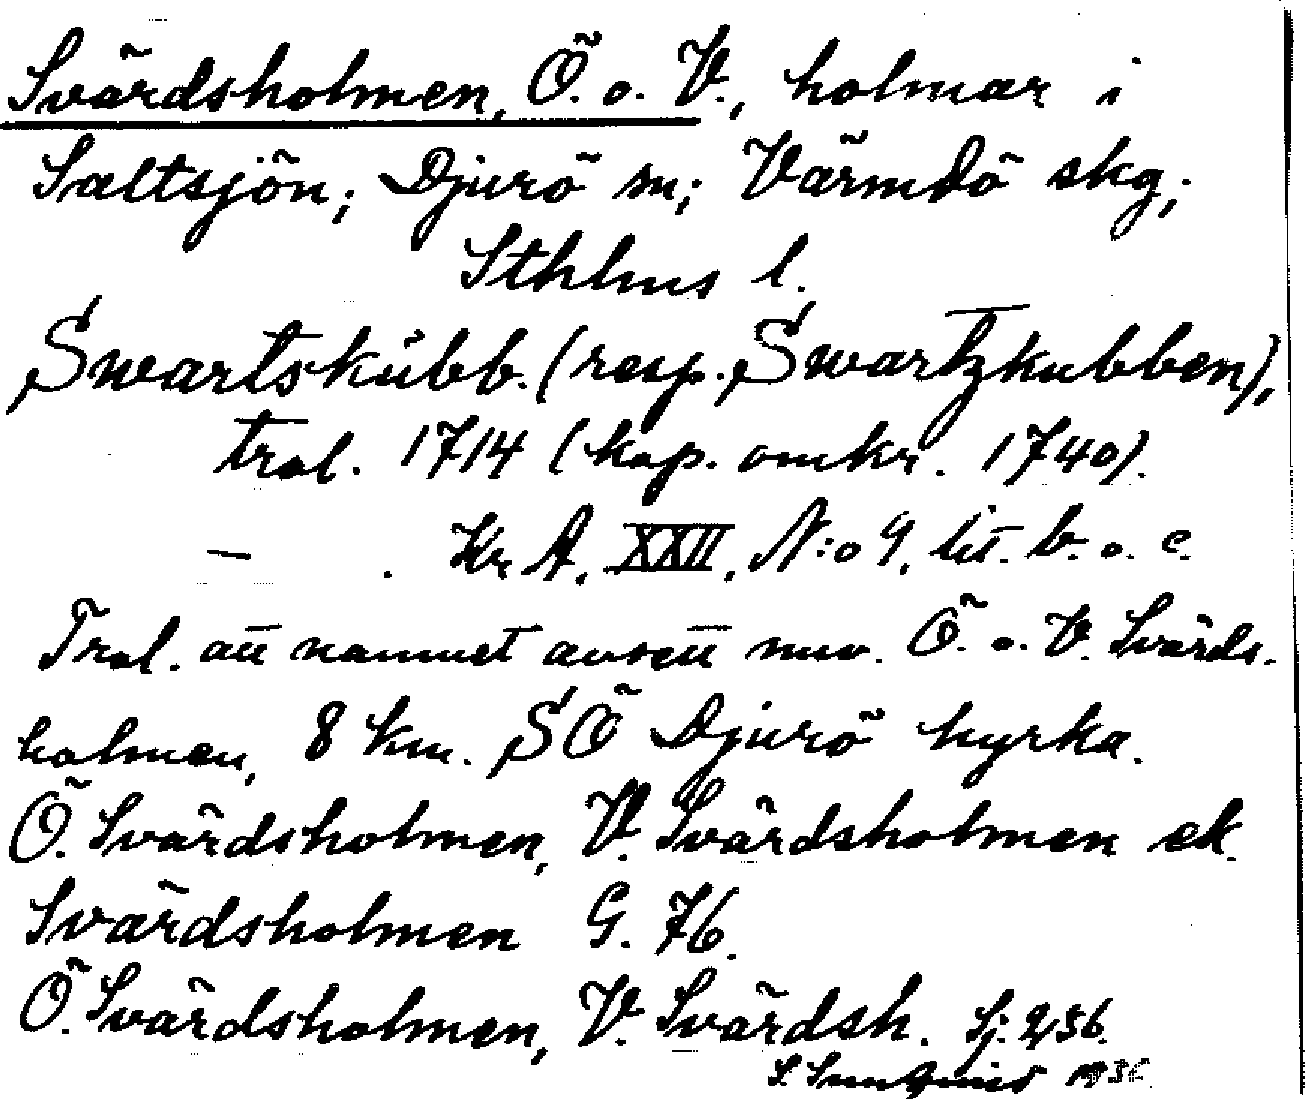 Svärdsholmen, Ö. o. V., holmar i
Saltsjön; Djurö sn; Värmdö skg;
Sthlms l.
Swartskübb. (resp. Swartzkubben),
trol. 1714 (kop. omkr. 1740).
— . Kr. A. XXII, N:o 9, lit. b. o. c.
Trol. att namnet avsett nuv. Ö. o. V. Svärds-
holmen, 8 km. SÖ Djurö kyrka.
Ö. Svärdsholmen, V. Svärdsholmen ek.
Svärdsholmen G. 76.
Ö. Svärdsholmen, V. Svärdsh. Sj. 236.
S. 1936